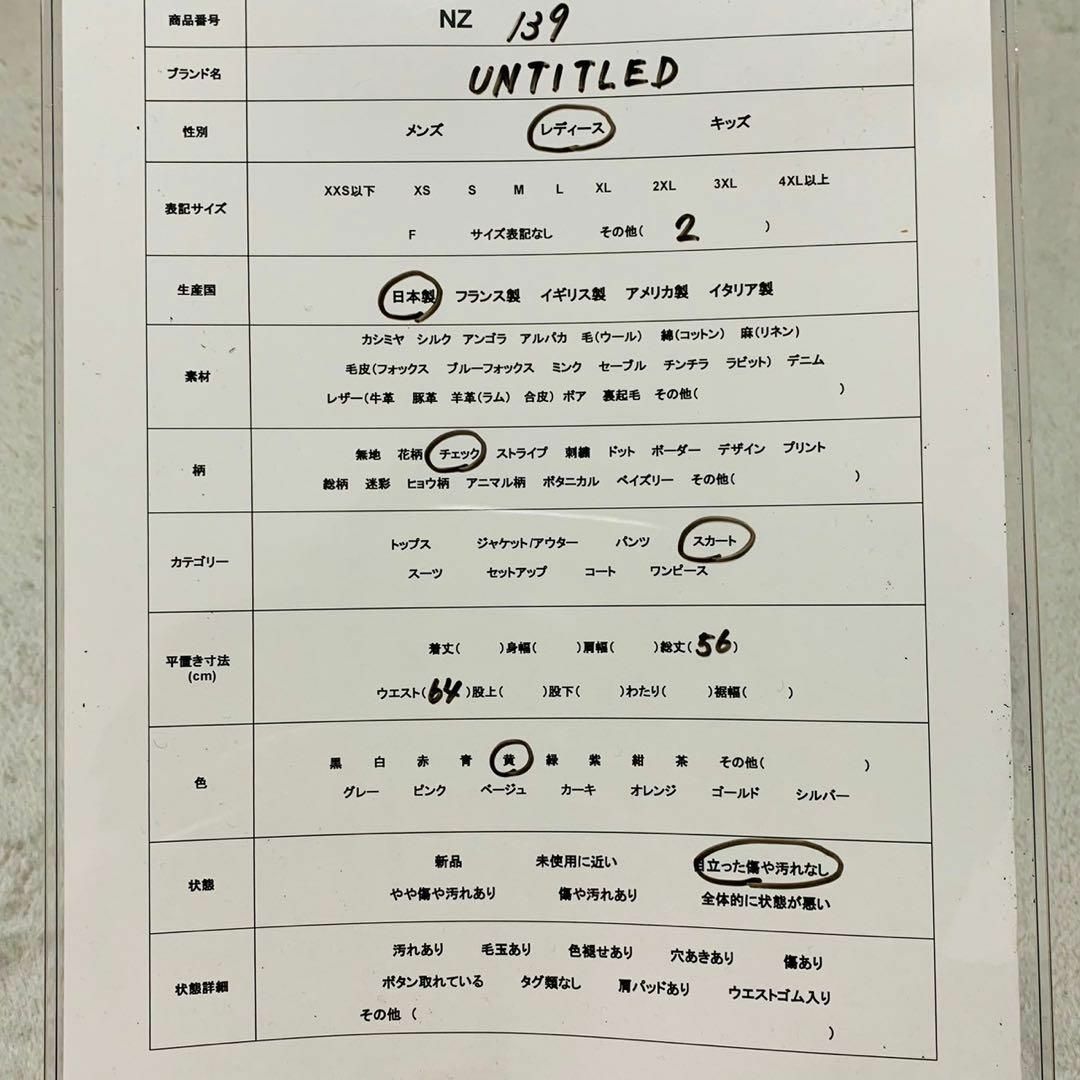 商品番号 NZ 139
ブランド名 UNTITLED
性別 メンズ レディース キッズ
表記サイズ
XXS以下 XS S M L XL 2XL 3XL 4XL以上
F サイズ表記なし その他( 2 )
生産国 日本製 フランス製 イギリス製 アメリカ製 イタリア製
素材
カシミヤ シルク アンゴラ アルパカ 毛(ウール) 綿(コットン) 麻(リネン)
毛皮(フォックス ブルーフォックス ミンク セーブル チンチラ ラビット) デニム
レザー(牛革 豚革 羊革(ラム) 合皮) ボア 裏起毛 その他( )
柄
無地 花柄 チェック ストライプ 刺繍 ドット ボーダー デザイン プリント
総柄 迷彩 ヒョウ柄 アニマル柄 ボタニカル ペイズリー その他( )
カテゴリー
トップス ジャケット/アウター パンツ スカート
スーツ セットアップ コート ワンピース
平置き寸法
(cm)
着丈( )身幅( )肩幅( )総丈( 56 )
ウエスト( 64 )股上( )股下( )わたり( )裾幅( )
色
黒 白 赤 青 黄 緑 紫 紺 茶 その他( )
グレー ピンク ベージュ カーキ オレンジ ゴールド シルバー
状態
新品 未使用に近い 目立った傷や汚れなし
やや傷や汚れあり 傷や汚れあり 全体的に状態が悪い
状態詳細
汚れあり 毛玉あり 色褪せあり 穴あきあり 傷あり
ボタン取れている タグ類なし 肩パッドあり ウエストゴム入り
その他 ( )